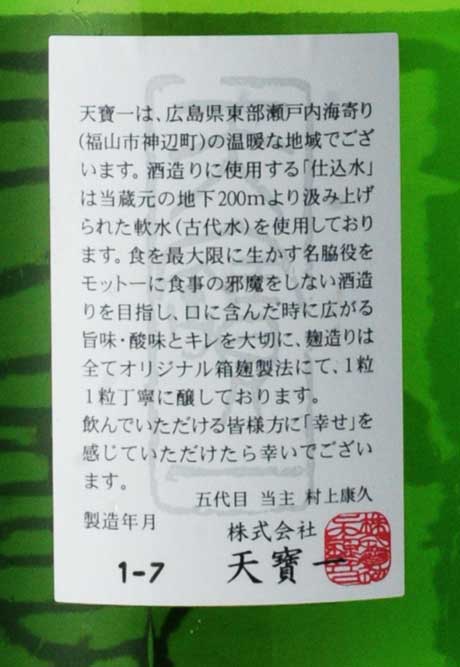 天寶一は、広島県東部瀬戸内海寄り
(福山市神辺町)の温暖な地域でござ
います。酒造りに使用する「仕込水」
は当蔵元の地下200mより汲み上げ
られた軟水(古代水)を使用しており
ます。食を最大限に生かす名脇役を
モットーに食事の邪魔をしない酒造
りを目指し、口に含んだ時に広がる
旨味・酸味とキレを大切に、麹造りは
全てオリジナル箱麹製法にて、1粒
1粒丁寧に醸しております。
飲んでいただける皆様方に「幸せ」を
感じていただけたら幸いでござい
ます。
五代目 当主 村上康久
製造年月
1-7
株式会社
天寶一